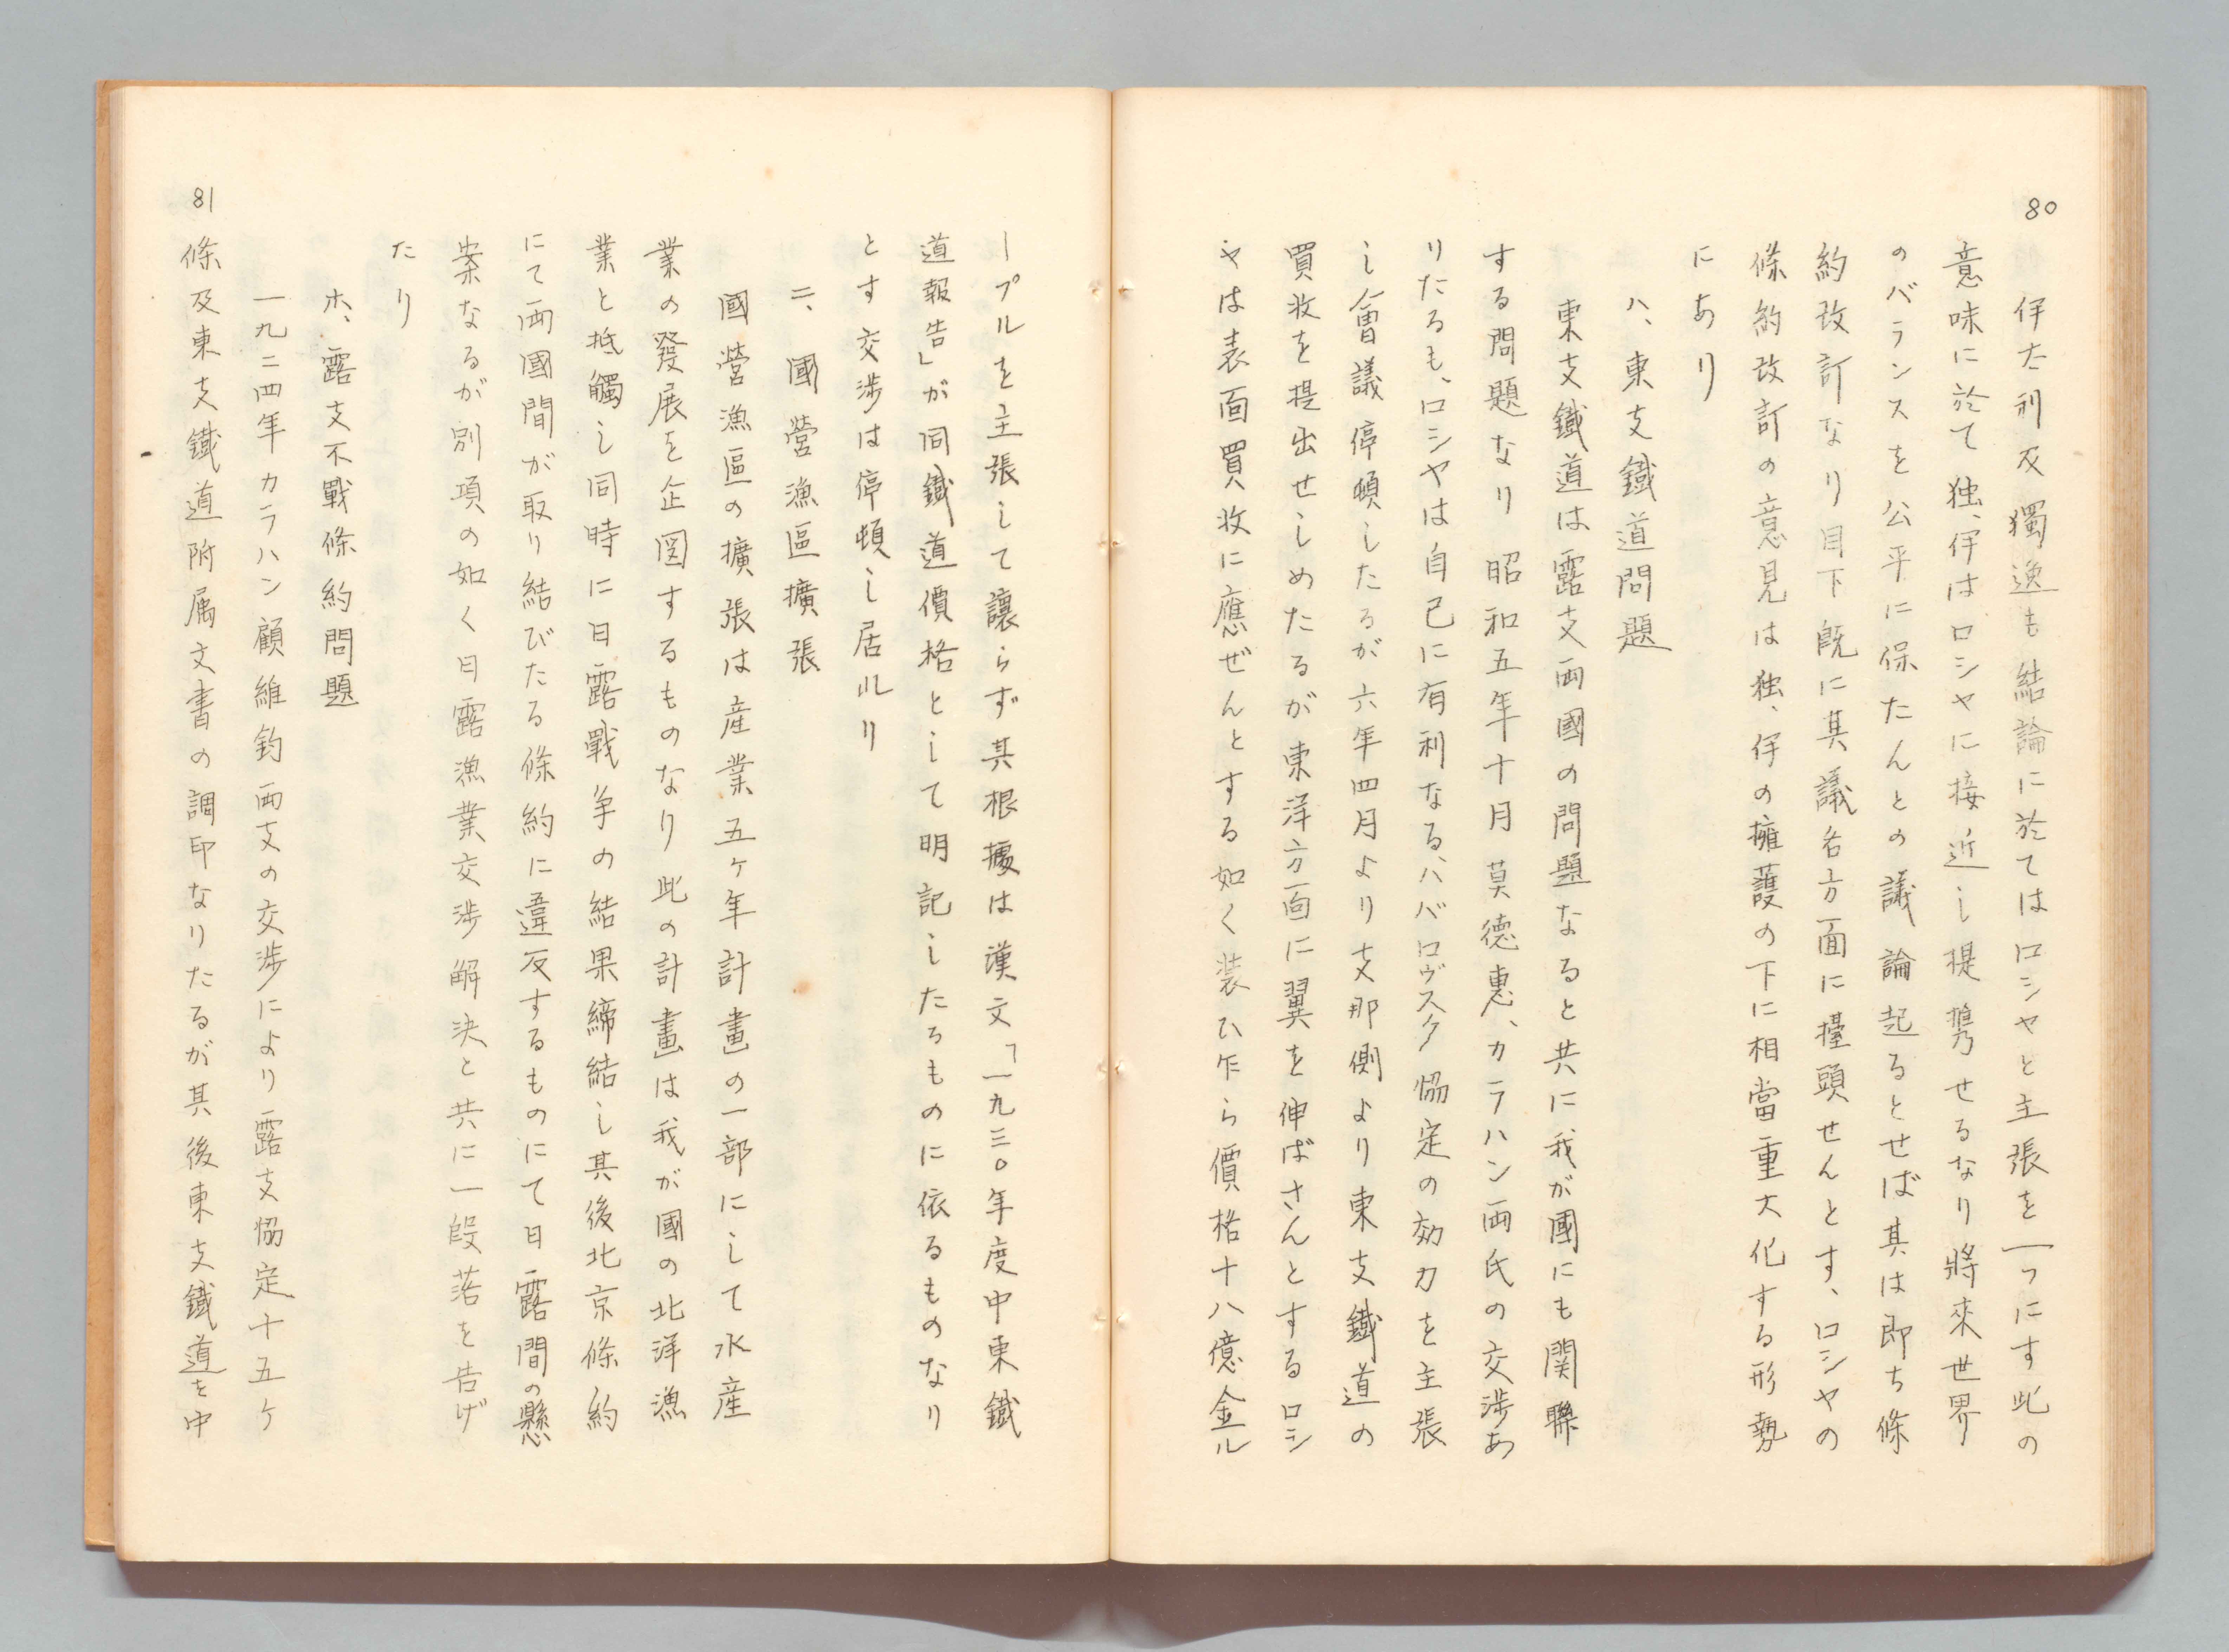 80
伊太利及獨逸も結論に於てはロシヤと主張を一つにす此の
意味に於て独、伊はロシヤに接近し提携せるなり將來世界
のバランスを公平に保たんとの議論起るとせば其は即ち條
約改訂なり目下既に其議各方面に擡頭せんとす、ロシヤの
條約改訂の意見は独、伊の擁護の下に相當重大化する形勢
にあり
ハ、東支鐵道問題
東支鐵道は露支両國の問題なると共に我が國にも関聯
する問題なり昭和五年十月莫德惠、カラハン両氏の交渉あ
りたるも、ロシヤは自己に有利なる、ハバロヴスク協定の効力を主張
し會議停頓したるが六年四月より支那側より東支鐵道の
買收を提出せしめたるが東洋方面に翼を伸ばさんとするロシ
ヤは表面買收に應ぜんとする如く装ひ乍ら價格十八億金ル
ープルを主張して讓らず其根據は漢文「一九三〇年度中東鐵
道報告」が同鐵道價格として明記したるものに依るものなり
とす交渉は停頓し居れり
ニ、國營漁區擴張
國營漁區の擴張は産業五ヶ年計畫の一部にして水産
業の發展を企図するものなり此の計畫は我が國の北洋漁
業と抵觸し同時に日露戰争の結果締結し其後北京條約
にて両國間が取り結びたる條約に違反するものにて日露間の懸
案なるが別項の如く日露漁業交渉解決と共に一段落を告げ
たり
ホ、露支不戰條約問題
一九二四年カラハン顧維釣両支の交渉により露支協定十五ヶ
81
條及東支鐵道附属文書の調印なりたるが其後東支鐵道を中